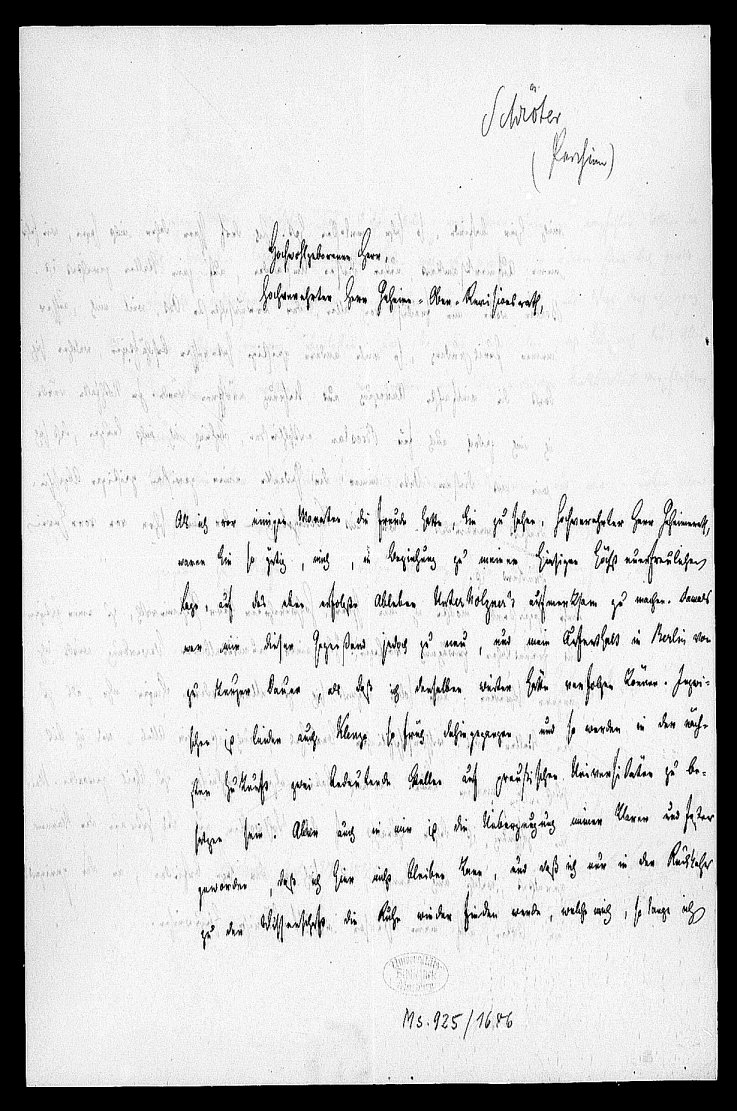 Schröter
(Parchim)
Hochwohlgeborener Herr,
Hochverehrter Herr Geheime-Ober-Revisionsrath,
Als ich vor einigen Monaten die Freude hatte, Sie zu sehen, hochverehrter Herr Geheimerath,
waren Sie so gütig, mich, in Beziehung zu meiner hiesigen höchst unerfreulichen
Lage, auf das eben erfolgte Ableben Unterholzner's aufmerksam zu machen. Damals
war mir dieser Gegenstand jedoch zu neu, und mein Aufenthalt in Berlin von
zu kurzer Dauer, als daß ich denselben weiter hätte verfolgen können. Inzwi-
schen ist leider auch Klenze so früh dahingegangen, und so werden in der näch-
sten Zukunft zwei bedeutende Stellen auf preußischen Universitäten zu be-
setzen sein. Aber auch in mir ist die Ueberzeugung immer klarer und fester
geworden, daß ich hier nicht bleiben kann, und daß ich nur in der Rückkehr
zu der Wissenschaft die Ruhe wieder finden werde, welche mich, so lange ich
Ms. 925/1686